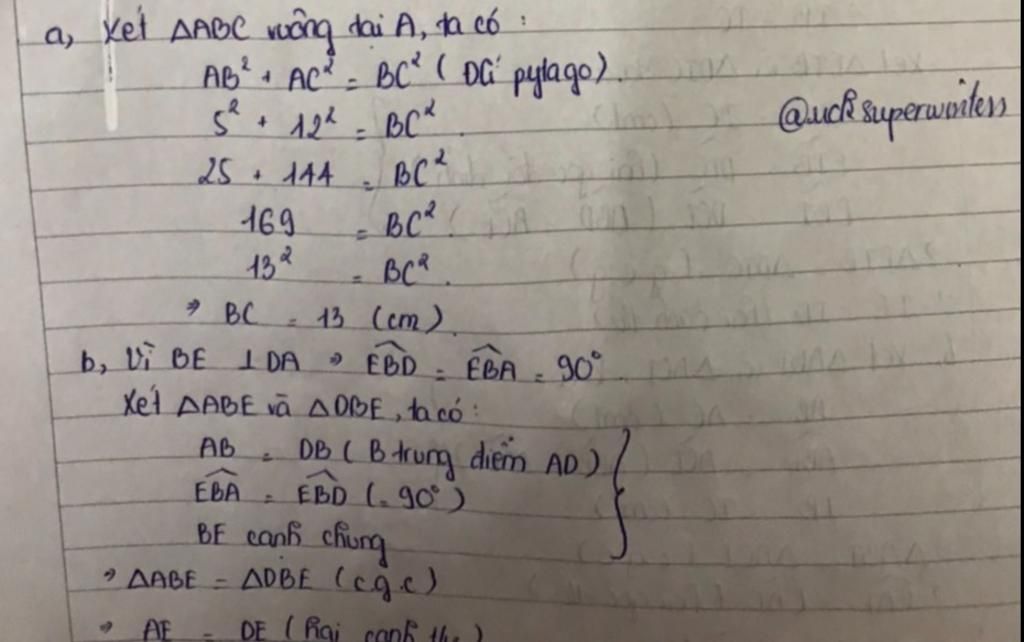 a, Xét ΔABC vuông tại A, ta có :
AB² + AC² = BC² ( ĐLí pytago).
5² + 12² = BC².
@uchsuperwriters
25 + 144 = BC²
169 = BC².
13² = BC².
⇒ BC = 13 (cm).
b, Vì BE ⊥ DA ⇒ \widehat{EBD} = \widehat{EBA} = 90°.
Xét ΔABE và ΔDBE, ta có :
AB = DB ( B trung điểm AD)
\widehat{EBA} = \widehat{EBD} (= 90°)
BE cạnh chung
⇒ ΔABE = ΔDBE (c.g.c)
⇒ AE = DE ( hai cạnh